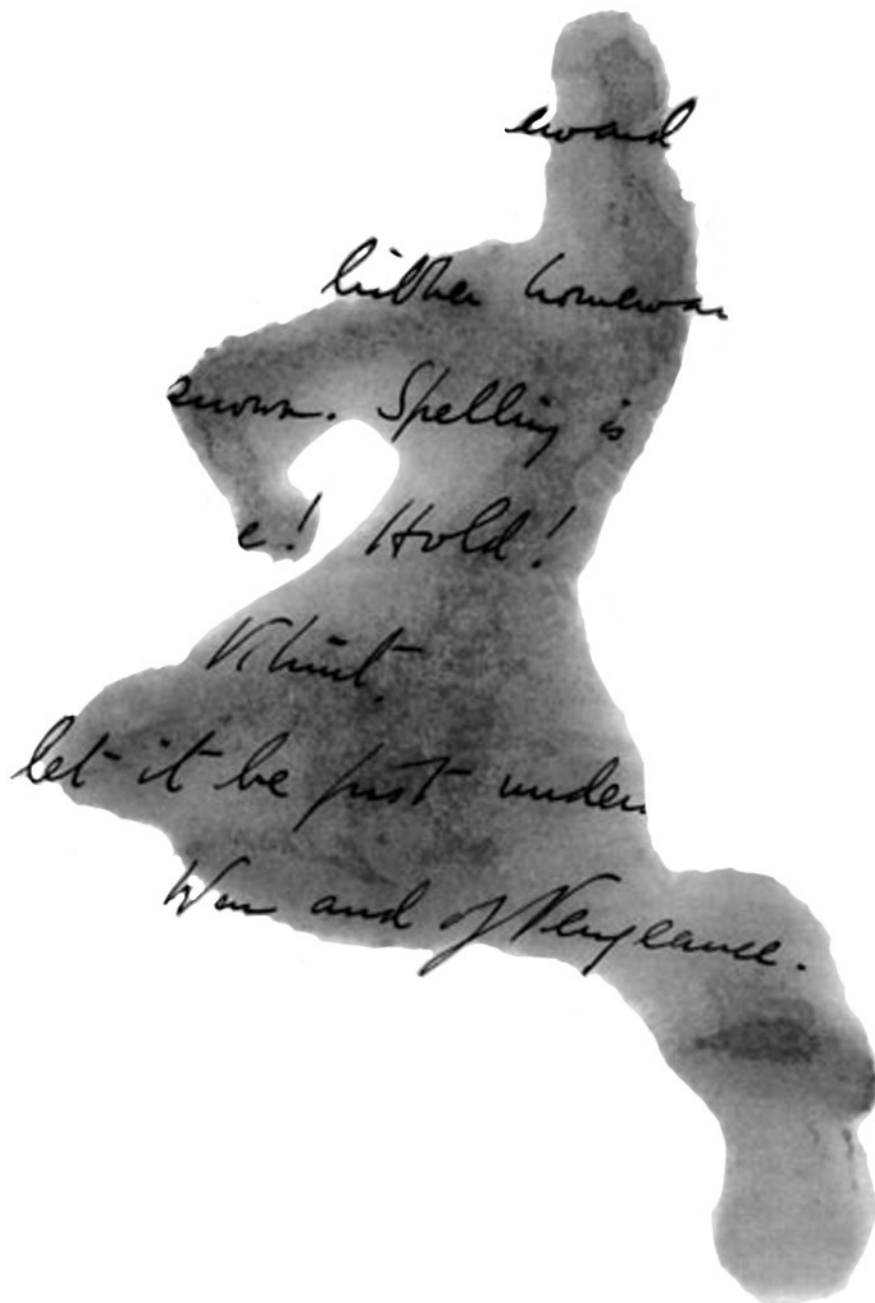 eward
hither homewar
known. Spelling is
e! Hold!
let it be just under
War and of Vengeance.